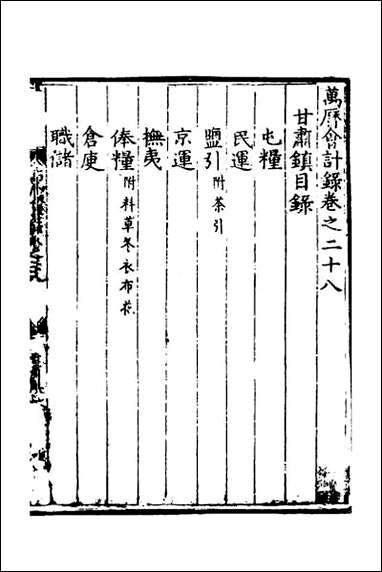 萬曆會計錄卷之二十八
甘肅鎮目錄
屯糧
民運
鹽引附茶引
京運
撫夷
俸糧附料草冬衣布花
倉庾
職儲